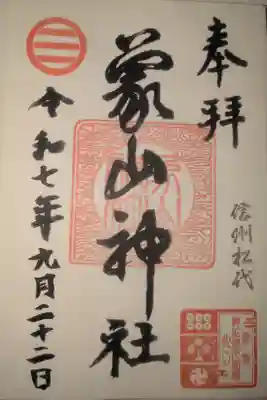 奉拝
信州松代
象山神社
令和七年九月二十二日